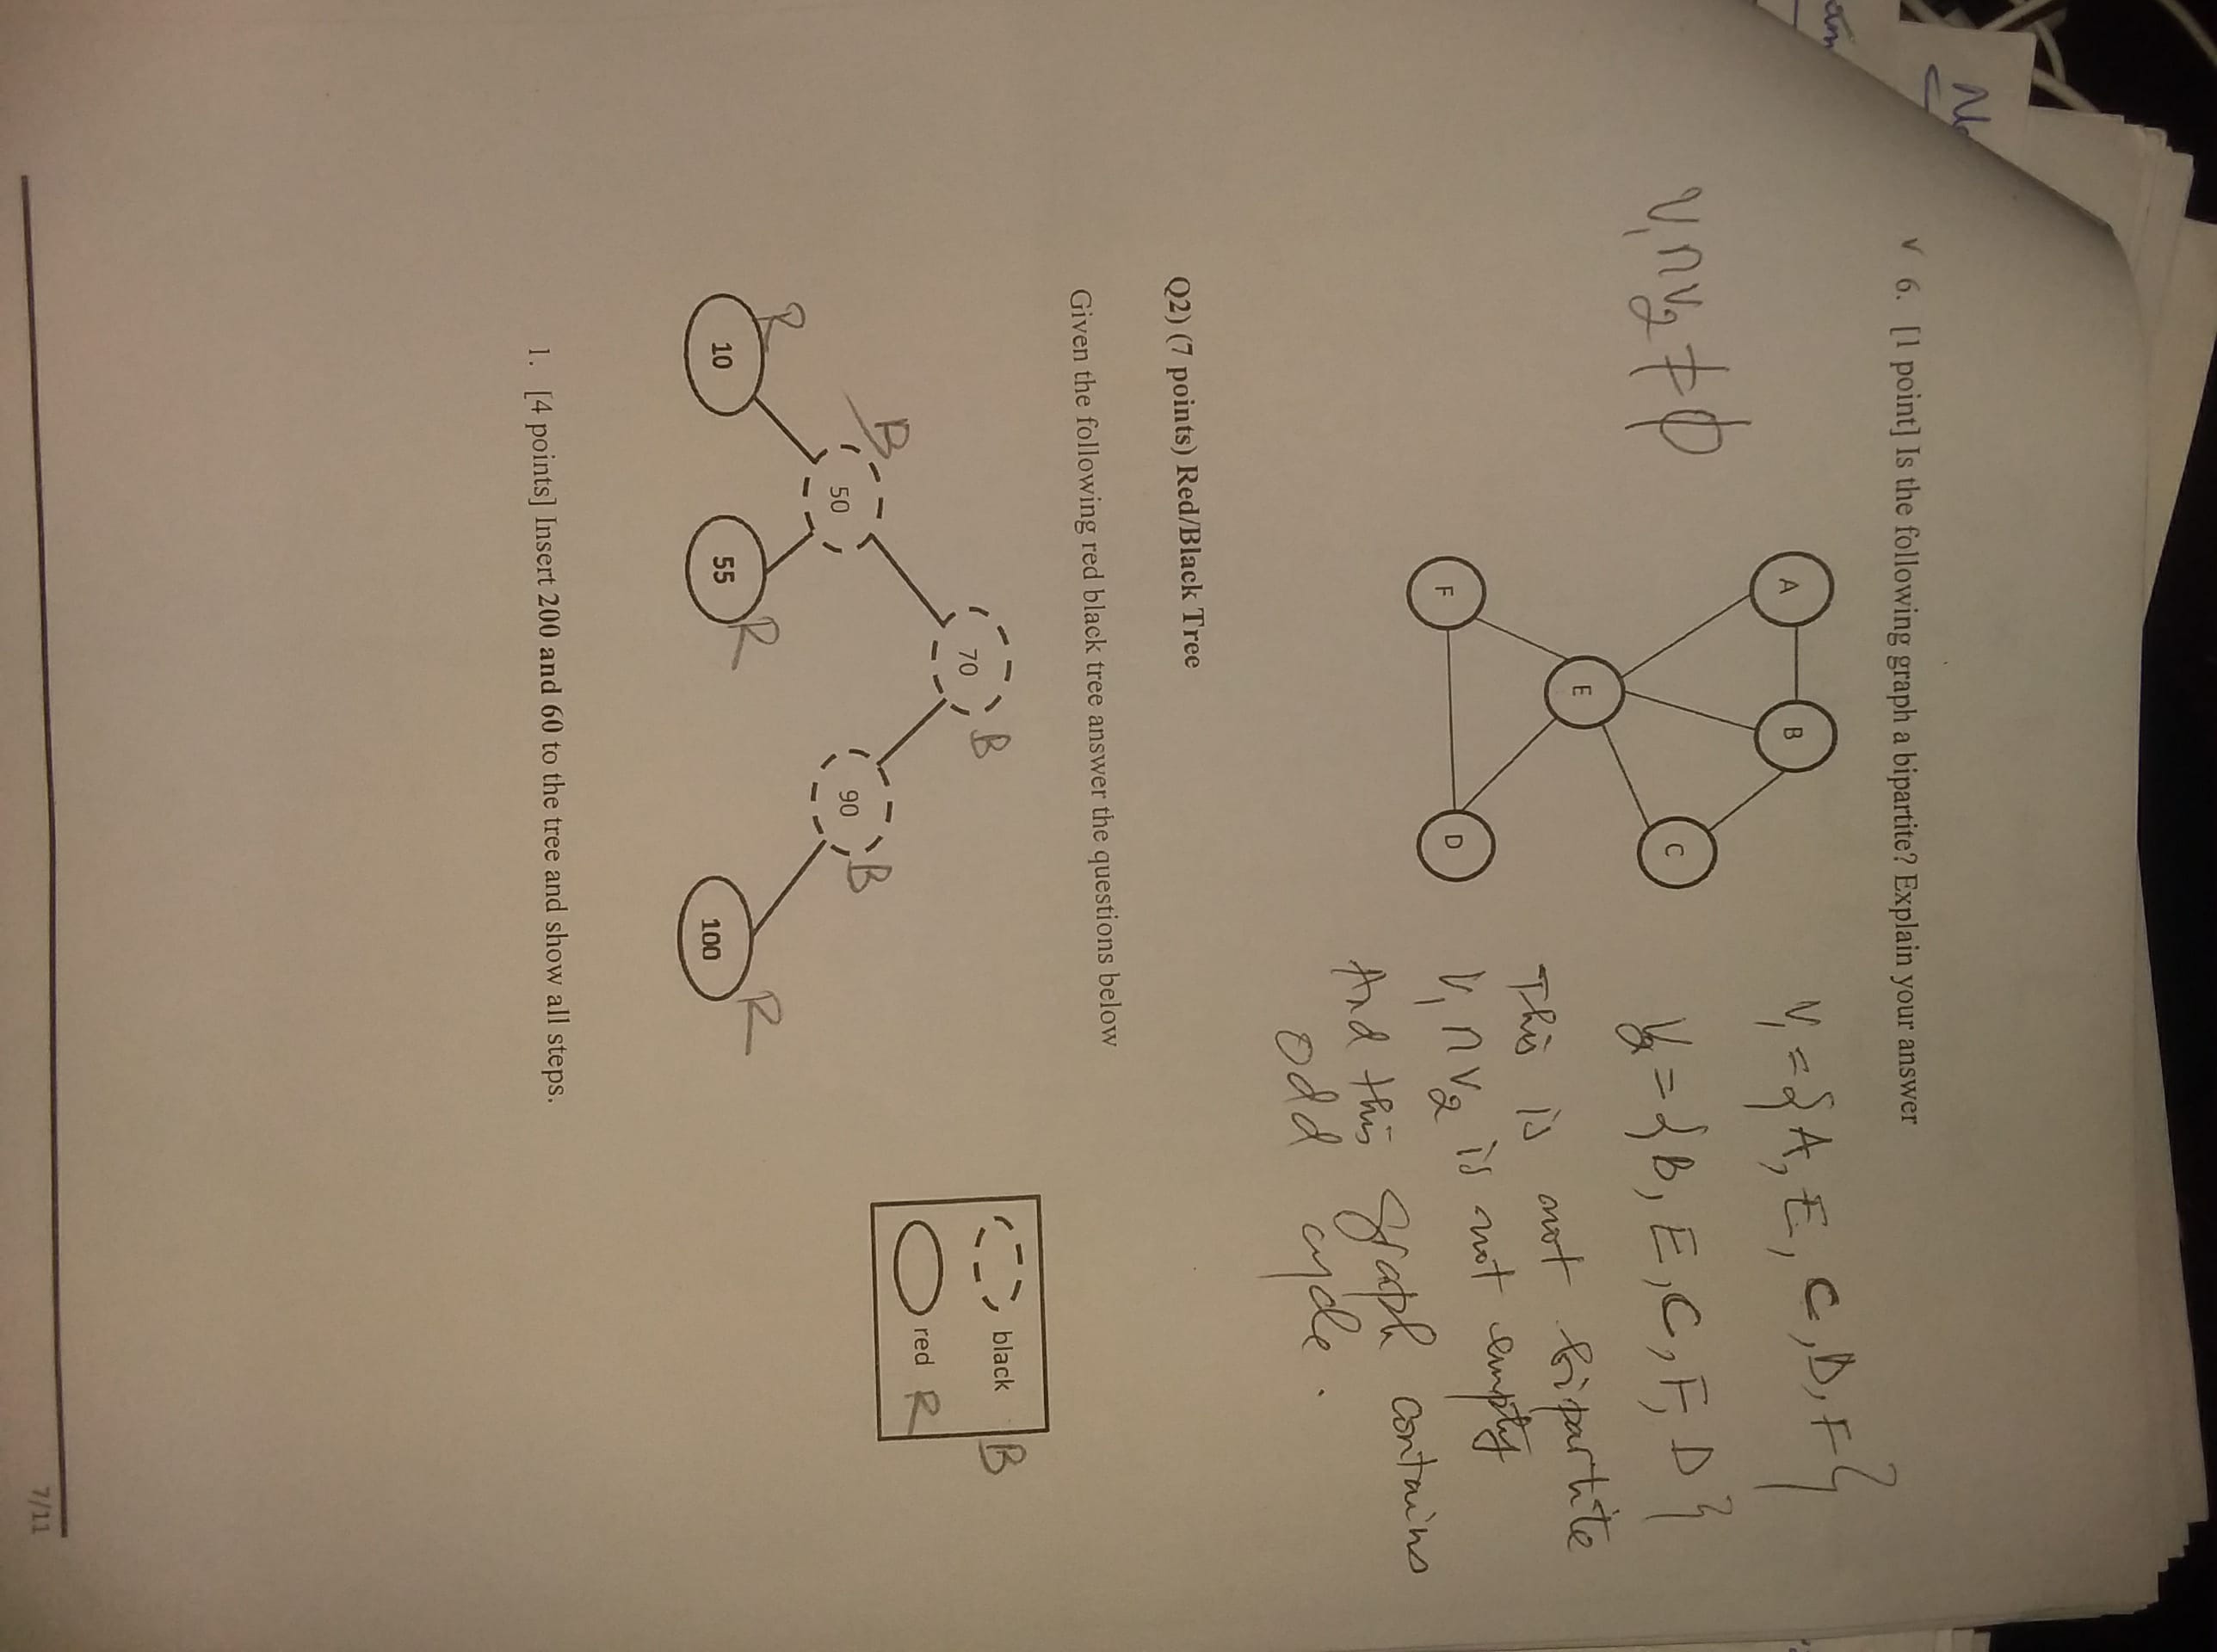 ✓ 6. [1 point] Is the following graph a bipartite? Explain your answer
A
B
C
E
F
D
V₁ ∩ V₂ ≠ ϕ
V₁ = {A, E, C, D, F}
V₂ = {B, E, C, F, D}
This is not bipartite
V₁ ∩ V₂ is not empty
And this graph contains
odd cycle.
Q2) (7 points) Red/Black Tree
Given the following red black tree answer the questions below
70 B
B 50
90 B
R 10
55 R
100 R
black B
red R
1. [4 points] Insert 200 and 60 to the tree and show all steps.
7/11